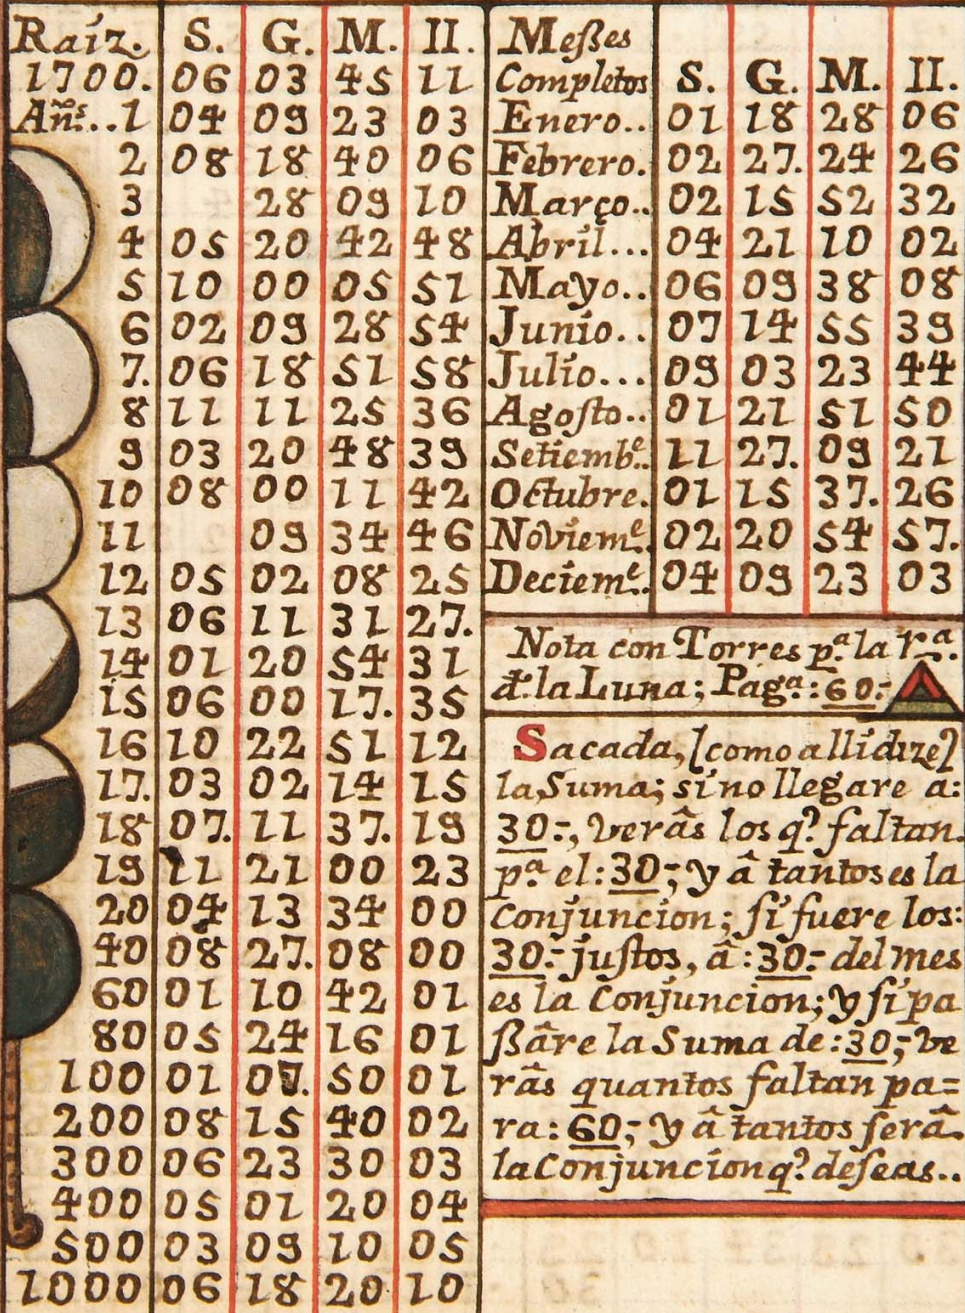 Raiz. S. G. M. II.
1700. 06 03 45 11
Añs..1 04 09 23 03
2 08 18 40 06
3 28 09 10
4 05 20 42 48
5 10 00 05 51
6 02 09 28 54
7. 06 18 51 58
8 11 11 25 36
9 03 20 48 39
10 08 00 11 42
11 09 34 46
12 05 02 08 25
13 06 11 31 27.
14 01 20 54 31
15 06 00 17. 35
16 10 22 51 12
17. 03 02 14 15
18 07. 11 37. 19
19 11 21 00 23
20 04 13 34 00
40 08 27. 08 00
60 01 10 42 01
80 05 24 16 01
100 01 07. 50 01
200 08 15 40 02
300 06 23 30 03
400 05 01 20 04
500 03 09 10 05
1000 06 18 20 10
Meßes
Completos S. G. M. II.
Enero.. 01 18 28 06
Febrero. 02 27. 24 26
Março.. 02 15 52 32
Abril... 04 21 10 02
Mayo.. 06 09 38 08
Junio.. 07 14 55 39
Julio... 09 03 23 44
Agoſto.. 01 21 51 50
Setiembᵉ.. 11 27. 09 21
Octubre. 01 15 37. 26
Noviemᵉ. 02 20 54 57.
Deciemᵉ. 04 09 23 03
Nota con Torres pᵃ. la rᵃ.
đ. la Luna; Pagᵃ.: 60:-
Sacada, [como alli dize]
la Suma; si no llegare a:
30:-, verâs los q? faltan.
pᵃ. el: 30:-; y â tantos es la
Conjuncion; ſi fuere los:
30:- juſtos, â: 30:- del mes
es la Conjuncion; y ſi pa
ßâre la Suma de: 30:-; ve
râs quantos faltan pa=
ra: 60:-; y â tantos ſerâ.
la Conjuncion q? deſeas..